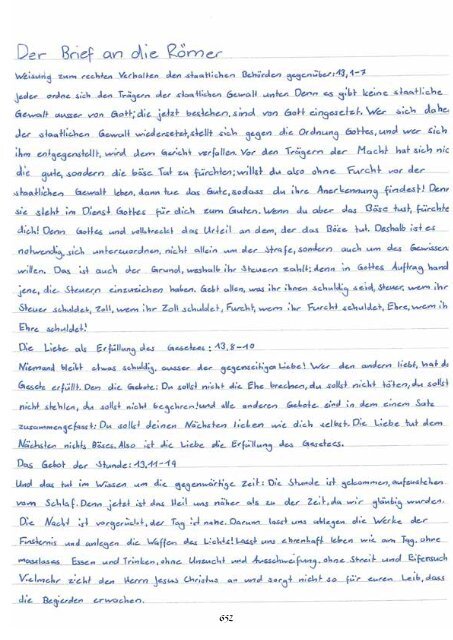 Der Brief an die Römer
Weisung zum rechten Verhalten den staatlichen Behörden gegenüber: 13,1-7
Jeder ordne sich den Trägern der staatlichen Gewalt unten Denn es gibt keine staatliche
Gewalt ausser von Gott; die jetzt bestehen, sind von Gott eingesetzt. Wer sich dahe
der staatlichen Gewalt wiedersetzt, stellt sich gegen die Ordnung Gottes, und wer sich
ihm entgegenstellt, wird dem Gericht verfallen. Vor den Trägern der Macht hat sich nic
die gute, sondern die böse Tat zu fürchten; willst du also ohne Furcht vor der
staatlichen Gewalt leben, dann tue das Gute, sodass du ihre Anerkennung findest! Denn
sie steht im Dienst Gottes für dich zum Guten. Wenn du aber das Böse tust, fürchte
dich! Denn Gottes und vollstreckt das Urteil an dem, der das Böse tut. Deshalb ist es
notwendig, sich unterzuordnen, nicht allein um der Strafe, sondern auch um des Gewissen
willen. Das ist auch der Grund, weshalb ihr Steuern zahlt; denn in Gottes Auftrag hand
jene, die Steuern einzuziehen haben. Gebt allen, was ihr ihnen schuldig seid, Steuer, wem ihr
Steuer schuldet, Zoll, wem ihr Zoll schuldet, Furcht, wem ihr Furcht schuldet, Ehre, wem ih
Ehre schuldet!
Die Liebe als Erfüllung des Gesetees: 13,8-10
Niemand bleibt etwas schuldig, ausser der gegenseitigen Liebe! Wer den andern liebt, hat d
Gesetz erfüllt. Den die Gebote: Du sollst nicht die Ehe brechen, du sollst nicht töten, du sollst
nicht stehlen, du sollst nicht begehren! und alle anderen Gebote sind in dem einem Satz
zusammengefasst: Du sollst deinen Nächsten lieben wie dich selbst. Die Liebe tut dem
Nächsten nichts Böses. Also ist die Liebe die Erfüllung des Gesetzes.
Das Gebot der Stunde: 13,11-14
Und das tut im Wissen um die gegenwärtige Zeit: Die Stunde ist gekommen, aufzustehen
vom Schlaf. Denn jetzt ist das Heil uns näher als zu der Zeit, da wir gläubig wurden.
Die Nacht ist vorgerückt, der Tag ist nahe. Darum lasst uns ablegen die Werke der
Finsternis und anlegen die Waffen des Lichts! Lasst uns ehrenhaft leben wie am Tag, ohne
masslosses Essen und Trinken, ohne Unzucht und Ausschweifung, ohne Streit und Eifersuch
Vielmehr zieht den Herrn Jesus Christus an und sorgt nicht so für euren Leib, dass
die Begierden erwachen.
652